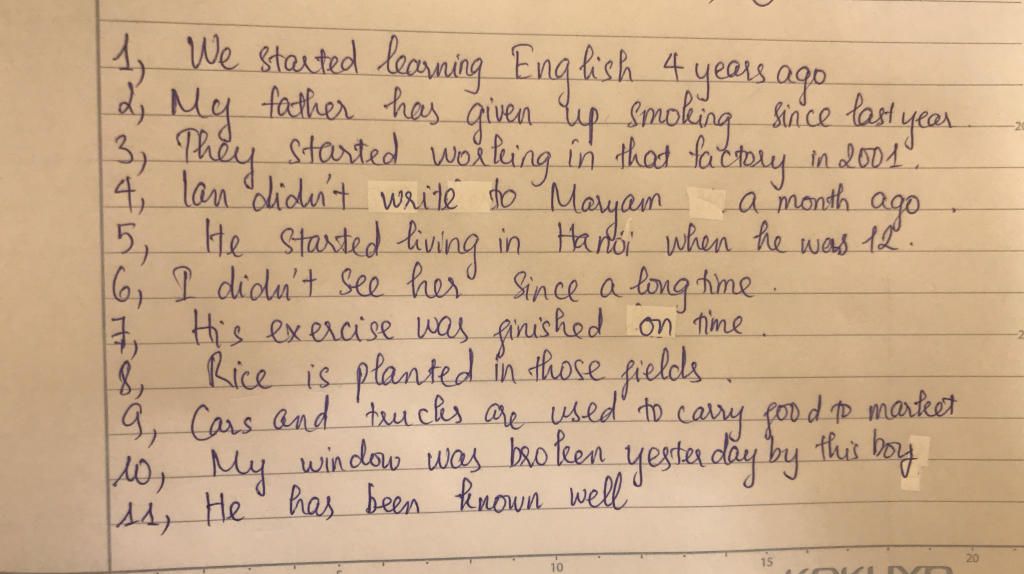 1, We started learning English 4 years ago
2, My father has given up smoking since last year
3, They started working in that factory in 2001.
4, Ian didn't write to Maryam a month ago.
5, He started living in Hanoi when he was 12.
6, I didn't see her since a long time.
7, His exercise was finished on time.
8, Rice is planted in those fields.
9, Cars and trucks are used to carry food to market
10, My window was broken yesterday by this boy
11, He has been known well
5 10 15 20
KOKUYO